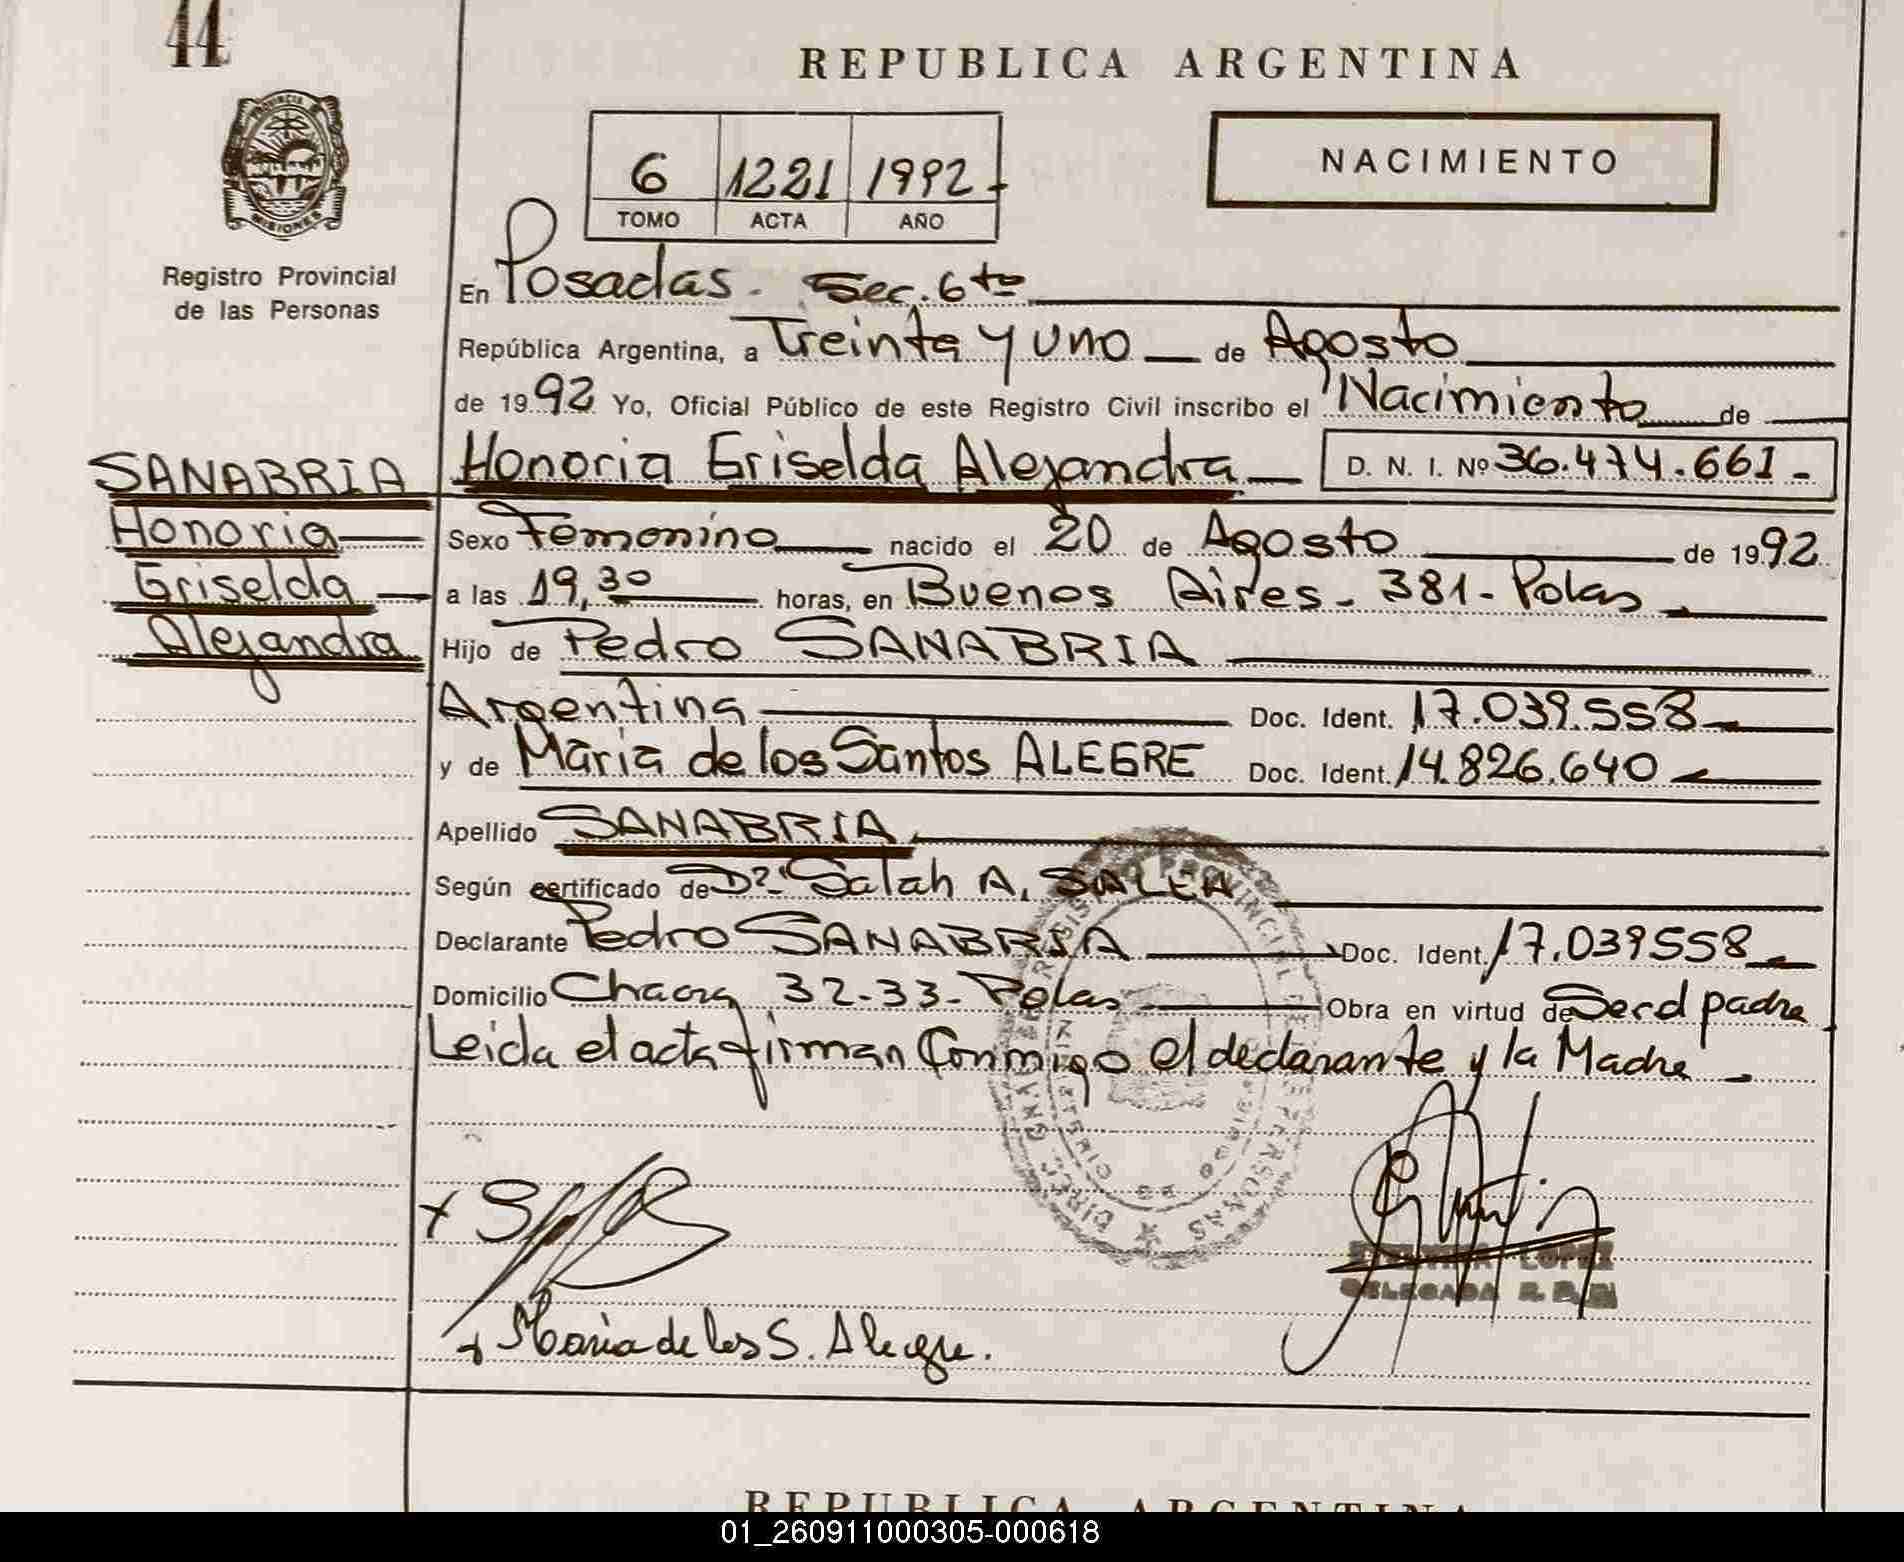 44
REPUBLICA ARGENTINA
PROVINCIA
MISIONES
Registro Provincial
de las Personas
NACIMIENTO
6 1221 1992
TOMO ACTA AÑO
En Posadas. Sec. 6ta
República Argentina, a Treinta y uno de Agosto
de 1992 Yo, Oficial Público de este Registro Civil inscribo el Nacimiento de
SANABRIA Honoria Griselda Alejandra D. N. I. Nº 36.474.661-
Honoria Sexo Femenino nacido el 20 de Agosto de 1992
Griselda a las 19,30 horas, en Buenos Aires- 381- Pdas
Alejandra Hijo de Pedro SANABRIA
Argentina Doc. Ident. 17.039.558
y de Maria de los Santos ALEGRE Doc. Ident. 14.826.640
Apellido SANABRIA
Según certificado de Dr. Salah A. 
Declarante Pedro SANABRIA Doc. Ident. 17.039558
Domicilio Chacra 32-33- Pdas Obra en virtud de Ser el padre
Leida el acta firman Conmigo el declarante y la Madre
+ Maria de los S. Alegre.
LOPEZ
DELEGADA
REPUBLICA ARGENTINA
01_260911000305-000618